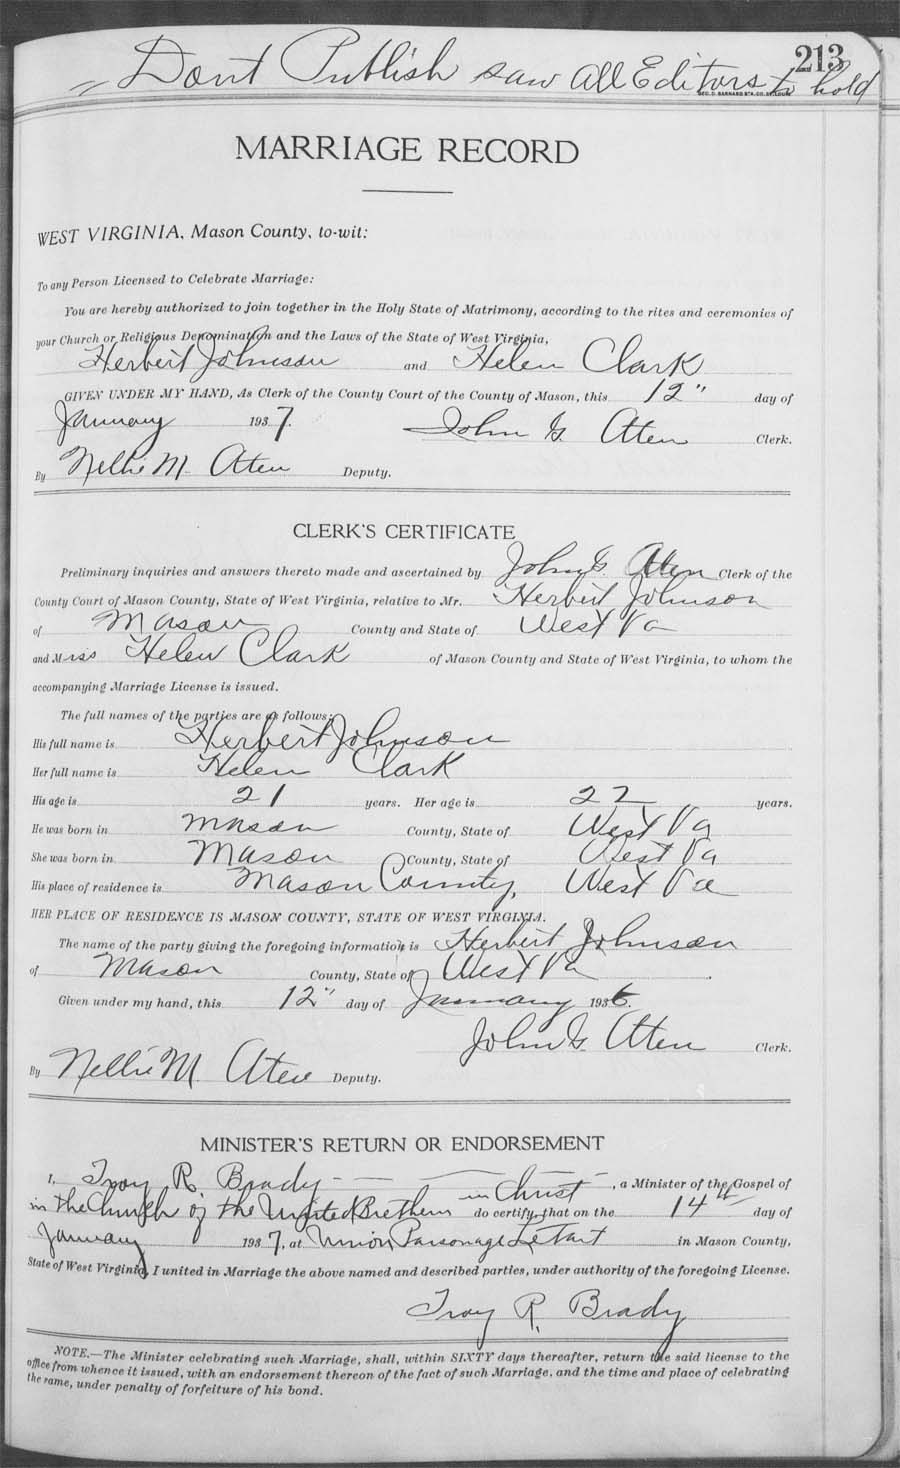 213
" Dont Publish saw all Editors to hold
GEO. D. BARNARD STA. CO. ST. LOUIS
MARRIAGE RECORD
WEST VIRGINIA, Mason County, to-wit:
To any Person Licensed to Celebrate Marriage:
You are hereby authorized to join together in the Holy State of Matrimony, according to the rites and ceremonies of
your Church or Religious Denomination and the Laws of the State of West Virginia,
Herbert Johnson and Helen Clark
GIVEN UNDER MY HAND, As Clerk of the County Court of the County of Mason, this 12" day of
January 1937. John G. Aten Clerk.
By Nellie M. Aten Deputy.
CLERK'S CERTIFICATE
Preliminary inquiries and answers thereto made and ascertained by John G. Aten Clerk of the
County Court of Mason County, State of West Virginia, relative to Mr. Herbert Johnson
of Mason County and State of West Va
and Miss Helen Clark of Mason County and State of West Virginia, to whom the
accompanying Marriage License is issued.
The full names of the parties are as follows:
His full name is Herbert Johnson
Her full name is Helen Clark
His age is 21 years. Her age is 22 years.
He was born in Mason County, State of West Va
She was born in Mason County, State of West Va
His place of residence is Mason County, West Va
HER PLACE OF RESIDENCE IS MASON COUNTY, STATE OF WEST VIRGINIA.
The name of the party giving the foregoing information is Herbert Johnson
of Mason County, State of West Va.
Given under my hand, this 12" day of January 1936.
John G. Aten Clerk.
By Nellie M. Aten Deputy.
MINISTER'S RETURN OR ENDORSEMENT
I, Troy R. Brady, a Minister of the Gospel of
in the Church of the United Brethern in Christ do certify, that on the 14th day of
January 1937, at Union Parsonage Letart in Mason County,
State of West Virginia, I united in Marriage the above named and described parties, under authority of the foregoing License.
Troy R. Brady
NOTE.—The Minister celebrating such Marriage, shall, within SIXTY days thereafter, return the said license to the
office from whence it issued, with an endorsement thereon of the fact of such Marriage, and the time and place of celebrating
the same, under penalty of forfeiture of his bond.